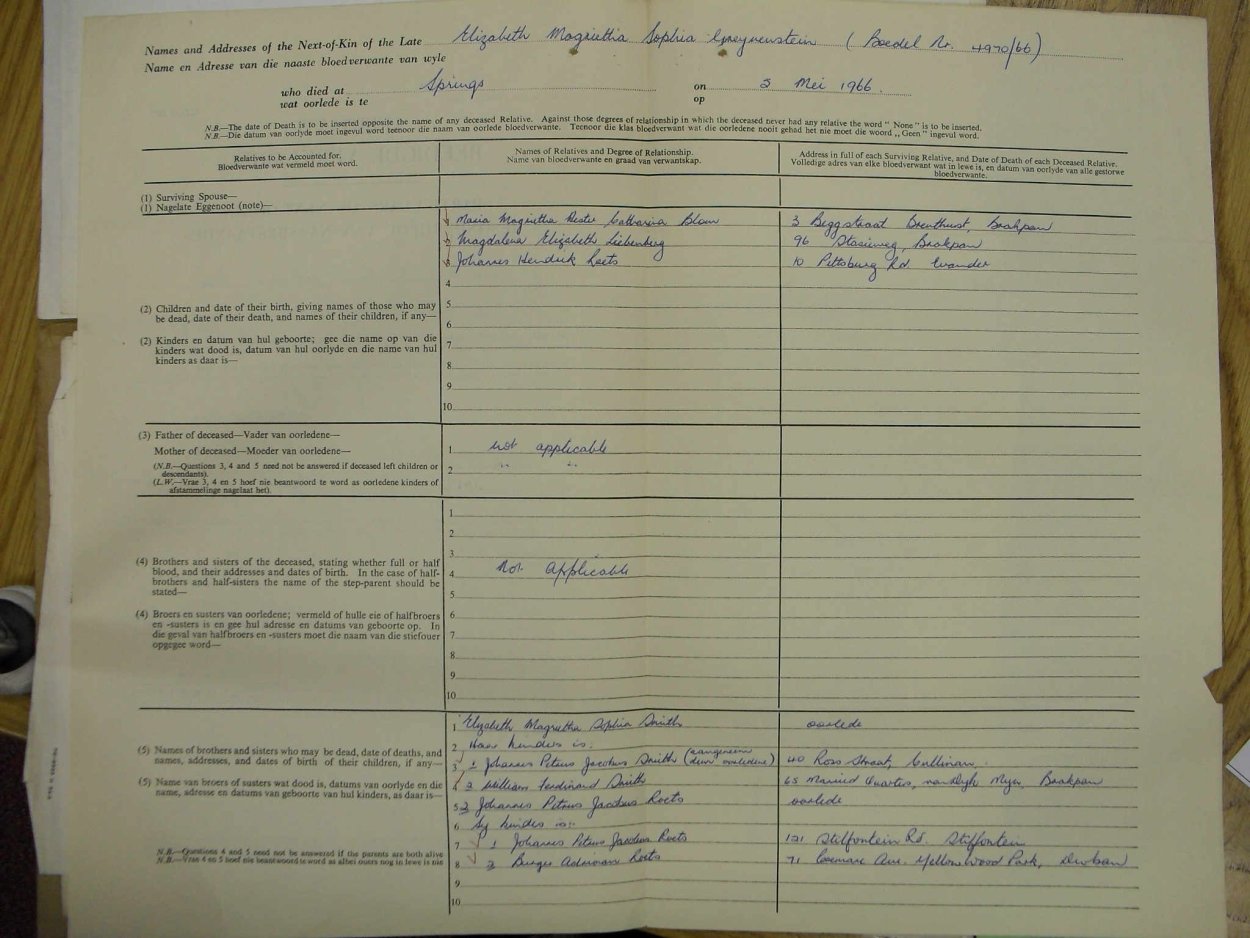 Names and Addresses of the Next-of-Kin of the Late Elizabeth Magrietha Sophia (Boedel Nr. 4970/66)
Name en Adresse van die naaste bloedverwante van wyle
who died at Springs on 2 Mei 1966.
wat oorlede is te op
N.B.—The date of Death is to be inserted opposite the name of any deceased Relative. Against those degrees of relationship in which the deceased never had any relative the word "None" is to be inserted.
N.B.—Die datum van oorlyde moet ingevul word teenoor die naam van oorlede bloedverwante. Teenoor die klas bloedverwant wat die oorledene nooit gehad het nie moet die woord „Geen" ingevul word.
Relatives to be Accounted for.
Bloedverwante wat vermeld moet word.
Names of Relatives and Degree of Relationship.
Name van bloedverwante en graad van verwantskap.
Address in full of each Surviving Relative, and Date of Death of each Deceased Relative.
Volledige adres van elke bloedverwant wat in lewe is, en datum van oorlyde van alle gestorwe
bloedverwante.
(1) Surviving Spouse—
(1) Nagelate Eggenoot (note)—
1 Maria Magrietha Hester Catharina Blom 3 Beggstraat Brenthurst, Brakpan
2 Magdalena Elizabeth Liebenberg 96 Stasieweg, Brakpan
3 Johannes Hendrik Roets 10 Pittsburg Rd. Evander
4
5
6
7
8
9
10
(2) Children and date of their birth, giving names of those who may
be dead, date of their death, and names of their children, if any—
(2) Kinders en datum van hul geboorte; gee die name op van die
kinders wat dood is, datum van hul oorlyde en die name van hul
kinders as daar is—
(3) Father of deceased—Vader van oorledene—
Mother of deceased—Moeder van oorledene—
(N.B.—Questions 3, 4 and 5 need not be answered if deceased left children or
descendants).
(L.W.—Vrae 3, 4 en 5 hoef nie beantwoord te word as oorledene kinders of
afstammelinge nagelaat het).
1 not applicable
2 " "
(4) Brothers and sisters of the deceased, stating whether full or half
blood, and their addresses and dates of birth. In the case of half-
brothers and half-sisters the name of the step-parent should be
stated—
(4) Broers en susters van oorledene; vermeld of hulle eie of halfbroers
en -susters is en gee hul adresse en datums van geboorte op. In
die geval van halfbroers en -susters moet die naam van die stiefouer
opgegee word—
1
2
3
4 Not applicable
5
6
7
8
9
10
(5) Names of brothers and sisters who may be dead, date of deaths, and
names, addresses, and dates of birth of their children, if any—
(5) Name van broers of susters wat dood is, datums van oorlyde en die
name, adresse en datums van geboorte van hul kinders, as daar is—
N.B.—Questions 4 and 5 need not be answered if the parents are both alive
N.B.—Vrae 4 en 5 hoef nie beantwoord te word as albei ouers nog in lewe is nie
1 Elizabeth Magrietha Sophia Smith oorlede
2 Haar kinders is:
3 1 Johannes Petrus Jacobus Smith (aangeneem deur oorledene) 40 Ross Straat, Cullinan.
4 2 William Ferdinand Smith 65 Married Quarters, Myn, Brakpan
5 2 Johannes Petrus Jacobus Roets oorlede
6 Sy kinders is:-
7 1 Johannes Petrus Jacobus Roets 121 Stilfontein Rd. Stilfontein
8 2 Burger Adriaan Roets 71 Ave. Yellow Wood Park, Durban
9
10